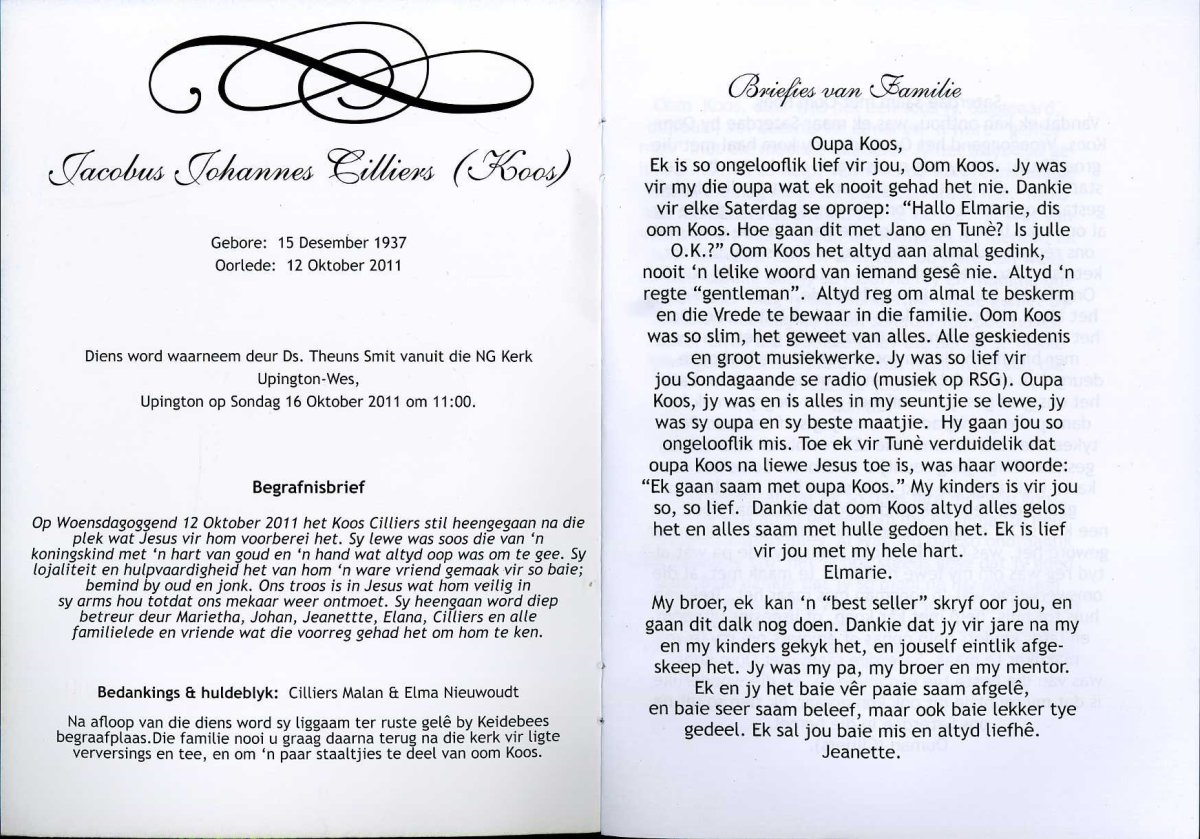 Jacobus Johannes Cilliers (Koos)
Gebore: 15 Desember 1937
Oorlede: 12 Oktober 2011
Diens word waarneem deur Ds. Theuns Smit vanuit die NG Kerk
Upington-Wes,
Upington op Sondag 16 Oktober 2011 om 11:00.
Begrafnisbrief
Op Woensdagoggend 12 Oktober 2011 het Koos Cilliers stil heengegaan na die
plek wat Jesus vir hom voorberei het. Sy lewe was soos die van ‘n
koningskind met ‘n hart van goud en ‘n hand wat altyd oop was om te gee. Sy
lojaliteit en hulpvaardigheid het van hom ‘n ware vriend gemaak vir so baie;
bemind by oud en jonk. Ons troos is in Jesus wat hom veilig in
sy arms hou totdat ons mekaar weer ontmoet. Sy heengaan word diep
betreur deur Marietha, Johan, Jeanettte, Elana, Cilliers en alle
familielede en vriende wat die voorreg gehad het om hom te ken.
Bedankings & huldeblyk: Cilliers Malan & Elma Nieuwoudt
Na afloop van die diens word sy liggaam ter ruste gelê by Keidebees
begraafplaas.Die familie nooi u graag daarna terug na die kerk vir ligte
verversings en tee, en om ‘n paar staaltjies te deel van oom Koos.
Briefies van Familie
Oupa Koos,
Ek is so ongelooflik lief vir jou, Oom Koos. Jy was
vir my die oupa wat ek nooit gehad het nie. Dankie
vir elke Saterdag se oproep: “Hallo Elmarie, dis
oom Koos. Hoe gaan dit met Jano en Tunè? Is julle
O.K.?” Oom Koos het altyd aan almal gedink,
nooit ‘n lelike woord van iemand gesê nie. Altyd ‘n
regte “gentleman”. Altyd reg om almal te beskerm
en die Vrede te bewaar in die familie. Oom Koos
was so slim, het geweet van alles. Alle geskiedenis
en groot musiekwerke. Jy was so lief vir
jou Sondagaande se radio (musiek op RSG). Oupa
Koos, jy was en is alles in my seuntjie se lewe, jy
was sy oupa en sy beste maatjie. Hy gaan jou so
ongelooflik mis. Toe ek vir Tunè verduidelik dat
oupa Koos na liewe Jesus toe is, was haar woorde:
“Ek gaan saam met oupa Koos.” My kinders is vir jou
so, so lief. Dankie dat oom Koos altyd alles gelos
het en alles saam met hulle gedoen het. Ek is lief
vir jou met my hele hart.
Elmarie.
My broer, ek kan ‘n “best seller” skryf oor jou, en
gaan dit dalk nog doen. Dankie dat jy vir jare na my
en my kinders gekyk het, en jouself eintlik afge-
skeep het. Jy was my pa, my broer en my mentor.
Ek en jy het baie vêr paaie saam afgelê,
en baie seer saam beleef, maar ook baie lekker tye
gedeel. Ek sal jou baie mis en altyd liefhê.
Jeanette.